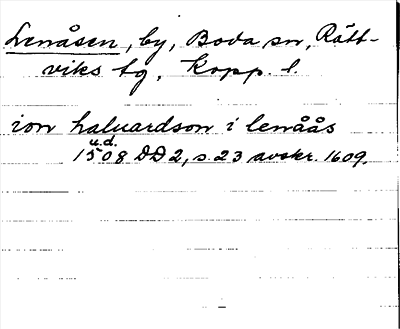 Lenåsen, by, Boda sn, Rätt-
viks tg, Kopp. l.
ion haluardson i lenåås
u.d.
1508 DD 2, s. 23 avskr. 1609.